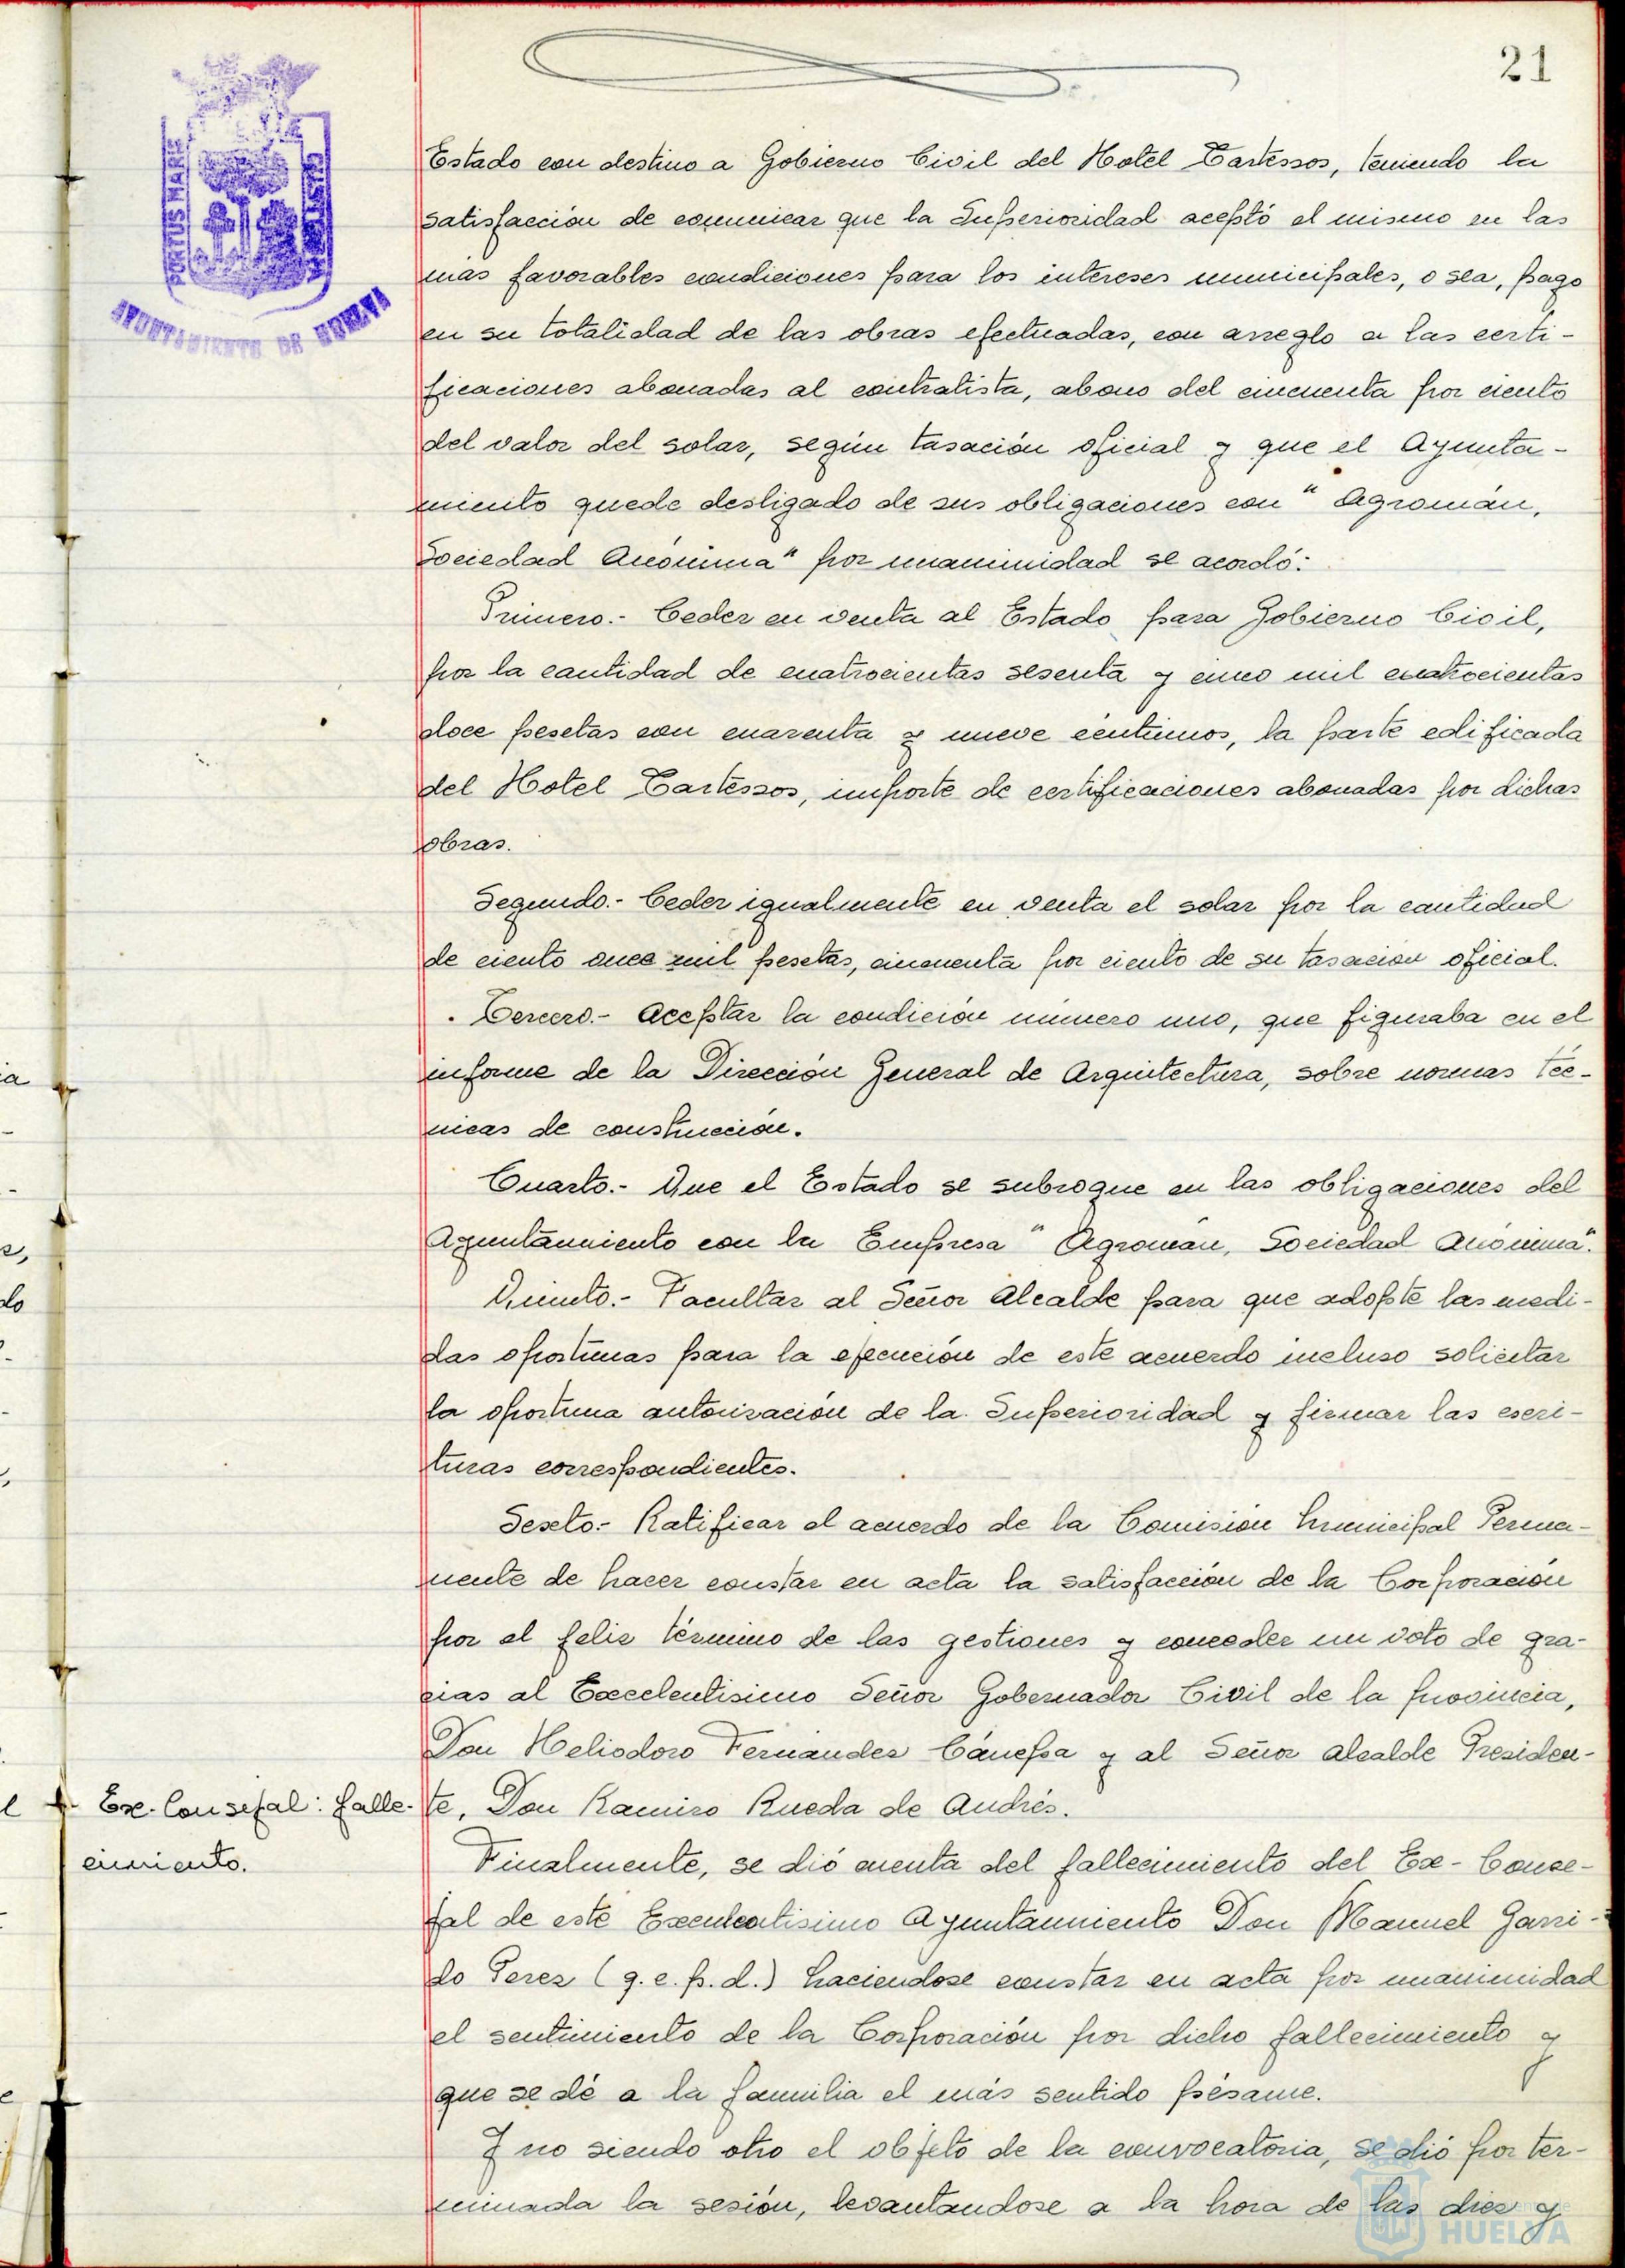 21
PORTUS MARIS
AYUNTAMIENTO DE HUELVA
Estado con destino a Gobierno Civil del Hotel Tartessos, teniendo la
satisfacción de comunicar que la Superioridad aceptó el mismo en las
mas favorables condiciones para los intereses municipales, o sea, pago
en su totalidad de las obras efectuadas, con arreglo a las certi-
ficaciones abonadas al contratista, abono del cincuenta por ciento
del valor del solar, según tasación oficial y que el Ayunta-
miento quede desligado de sus obligaciones con " Agromán,
Sociedad Anónima" por unanimidad se acordó:
Primero.- Ceder en venta al Estado para Gobierno Civil,
por la cantidad de cuatrocientas sesenta y cinco mil cuatrocientas
doce pesetas con cuarenta y nueve céntimos, la parte edificada
del Hotel Tartessos, importe de certificaciones abonadas por dichas
obras.
Segundo.- Ceder igualmente en venta el solar por la cantidad
de ciento once mil pesetas, cincuenta por ciento de su tasación oficial.
Tercero.- Aceptar la condición número uno, que figuraba en el
informe de la Dirección General de Arquitectura, sobre normas téc-
nicas de construcción.
Cuarto.- Que el Estado se subrogue en las obligaciones del
Ayuntamiento con la Empresa " Agromán, Sociedad Anónima".
Quinto.- Facultar al Señor Alcalde para que adopte las medi-
das oportunas para la ejecución de este acuerdo incluso solicitar
la oportuna autorización de la Superioridad y firmar las escri-
turas correspondientes.
Sexto.- Ratificar el acuerdo de la Comisión Municipal Perma-
nente de hacer constar en acta la satisfacción de la Corporación
por el feliz término de las gestiones y conceder un voto de gra-
cias al Excelentisimo Señor Gobernador Civil de la provincia,
Don Heliodoro Fernandez Cánepa y al Señor Alcalde Presiden-
te, Don Ramiro Rueda de Andrés.
Ex-Consejal: falle-
cimiento.
Finalmente, se dió cuenta del fallecimiento del Ex-Conse-
jal de este Excelentisimo Ayuntamiento Don Manuel Garri-
do Perez (q.e.p.d.) haciendose constar en acta por unanimidad
el sentimiento de la Corporación por dicho fallecimiento y
que se dé a la familia el más sentido pésame.
Y no siendo otro el objeto de la convocatoria, se dió por ter-
minada la sesión, levantandose a la hora de las diez y
HUELVA